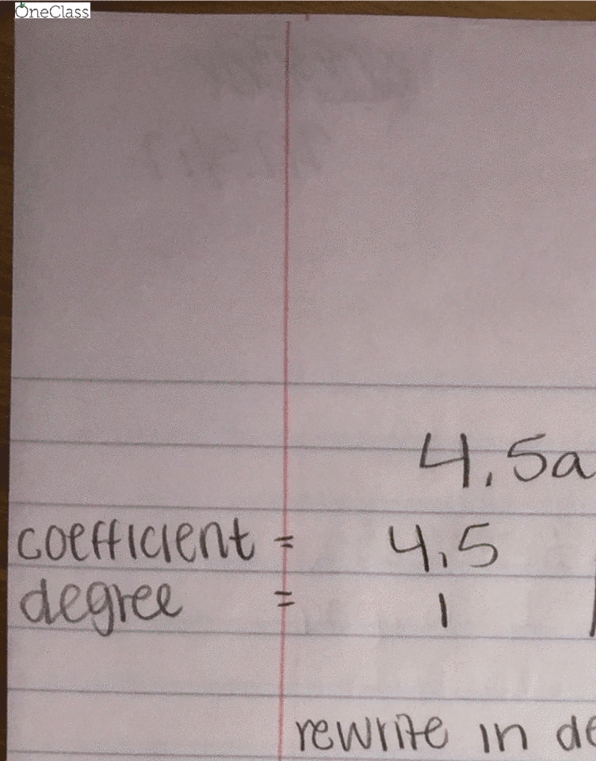 OneClass
4.5a
coefficient = 4.5
degree = 1
rewrite in de